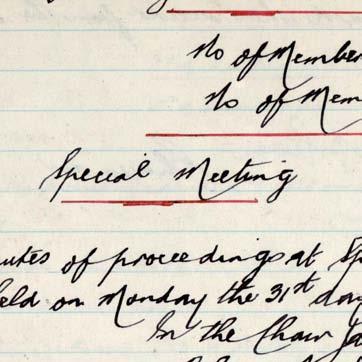 No of Member
No of Mem
Special Meeting
utes of proceedings at Sp
eld on Monday the 31st day
In the Chair Ja